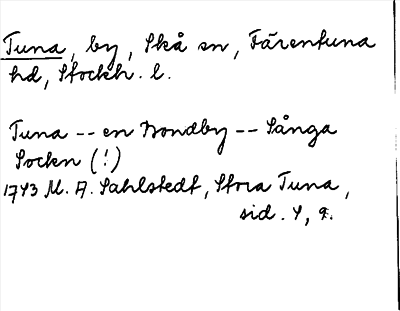 Tuna, by, Skå sn, Färentuna
hd, Stockh. l.
Tuna -- en Bondby -- Sånga
Sockn (!)
1743 M. A. Sahlstedt, Stora Tuna,
sid. 4, 9.